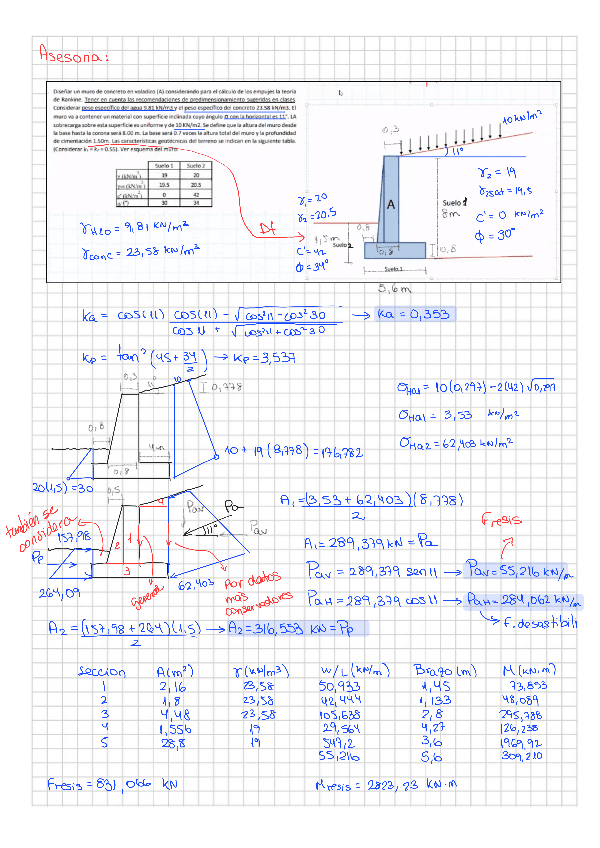 Asesoria:
Diseñar un muro de concreto en voladizo (A) considerando para el cálculo de los empujes la teoría
de Rankine. Tener en cuenta las recomendaciones de predimensionamiento sugeridas en clases
Considerar peso específico del agua 9.81 kN/m3 y el peso específico del concreto 23.58 kN/m3. El
muro va a contener un material con superficie inclinada cuyo ángulo α con la horizontal es 11°. LA
sobrecarga sobre esta superficie es uniforme y de 10 KN/m2. Se define que la altura del muro desde
la base hasta la corona será 8.00 m. La base será 0.7 veces la altura total del muro y la profundidad
de cimentación 1.50m. Las características geotécnicas del terreno se indican en la siguiente tabla.
(Considerar k₁ = k₂ = 0.55). Ver esquema del muro.
Suelo 1 Suelo 2
γ (kN/m³) 19 20
γsat (kN/m³) 19.5 20.5
c' (kN/m²) 0 42
φ' (°) 30 34
γH2O = 9,81 KN/m³
γconc = 23,58 KN/m³
Df
10 KN/m²
0.3
11°
γ₁ = 20
γ₂ = 20,5
C' = 42
Φ = 34°
A
Suelo 1
8m
γ₂ = 19
γ2sat = 19,5
C' = 0 KN/m²
Φ = 30°
1,5m
Suelo 2
0,8
0,8
0,8
Suelo 1
5,6m
Ka = cos(11) cos(11) - √cos²11 - cos²30 → Ka = 0,353
cos 11 + √cos²11 + cos²30
Kp = tan²(45 + 34/2) → Kp = 3,537
0,3
11°
10
0,778
0,8
4m
0,8
10 + 19 (8,778) = 176,782
20(1,5) = 30
σHa1 = 10(0,297) - 2(42)√0,297
σHa1 = 3,53 KN/m²
σHa2 = 62,403 KN/m²
0,5
también se considera
157,98
Pp
264,09
1
2
3
4
General
62,403
Pav
Pa
11°
Pav
Por datos más conservadores
A₁ = (3,53 + 62,403)(8,778)
2
A₁ = 289,379 KN = Pa
Fresis
Pav = 289,379 sen 11 → Pav = 55,216 KN/m
PaH = 289,379 cos 11 → PaH = 284,062 KN/m
F. desastibili
A₂ = (157,98 + 264)(1,5) → A₂ = 316,553 KN = Pp
2
Seccion A(m²) γ(KN/m³) W/L (KN/m) Brazo (m) M (KN.m)
1 2,16 23,58 50,933 1,45 73,853
2 1,8 23,58 42,444 1,133 48,089
3 4,48 23,58 105,638 2,8 295,788
4 1,556 19 29,564 4,27 126,238
5 28,8 19 547,2 3,6 1969,92
55,216 5,6 309,210
Fresis = 831,066 KN
Mresis = 2823,23 KN.m